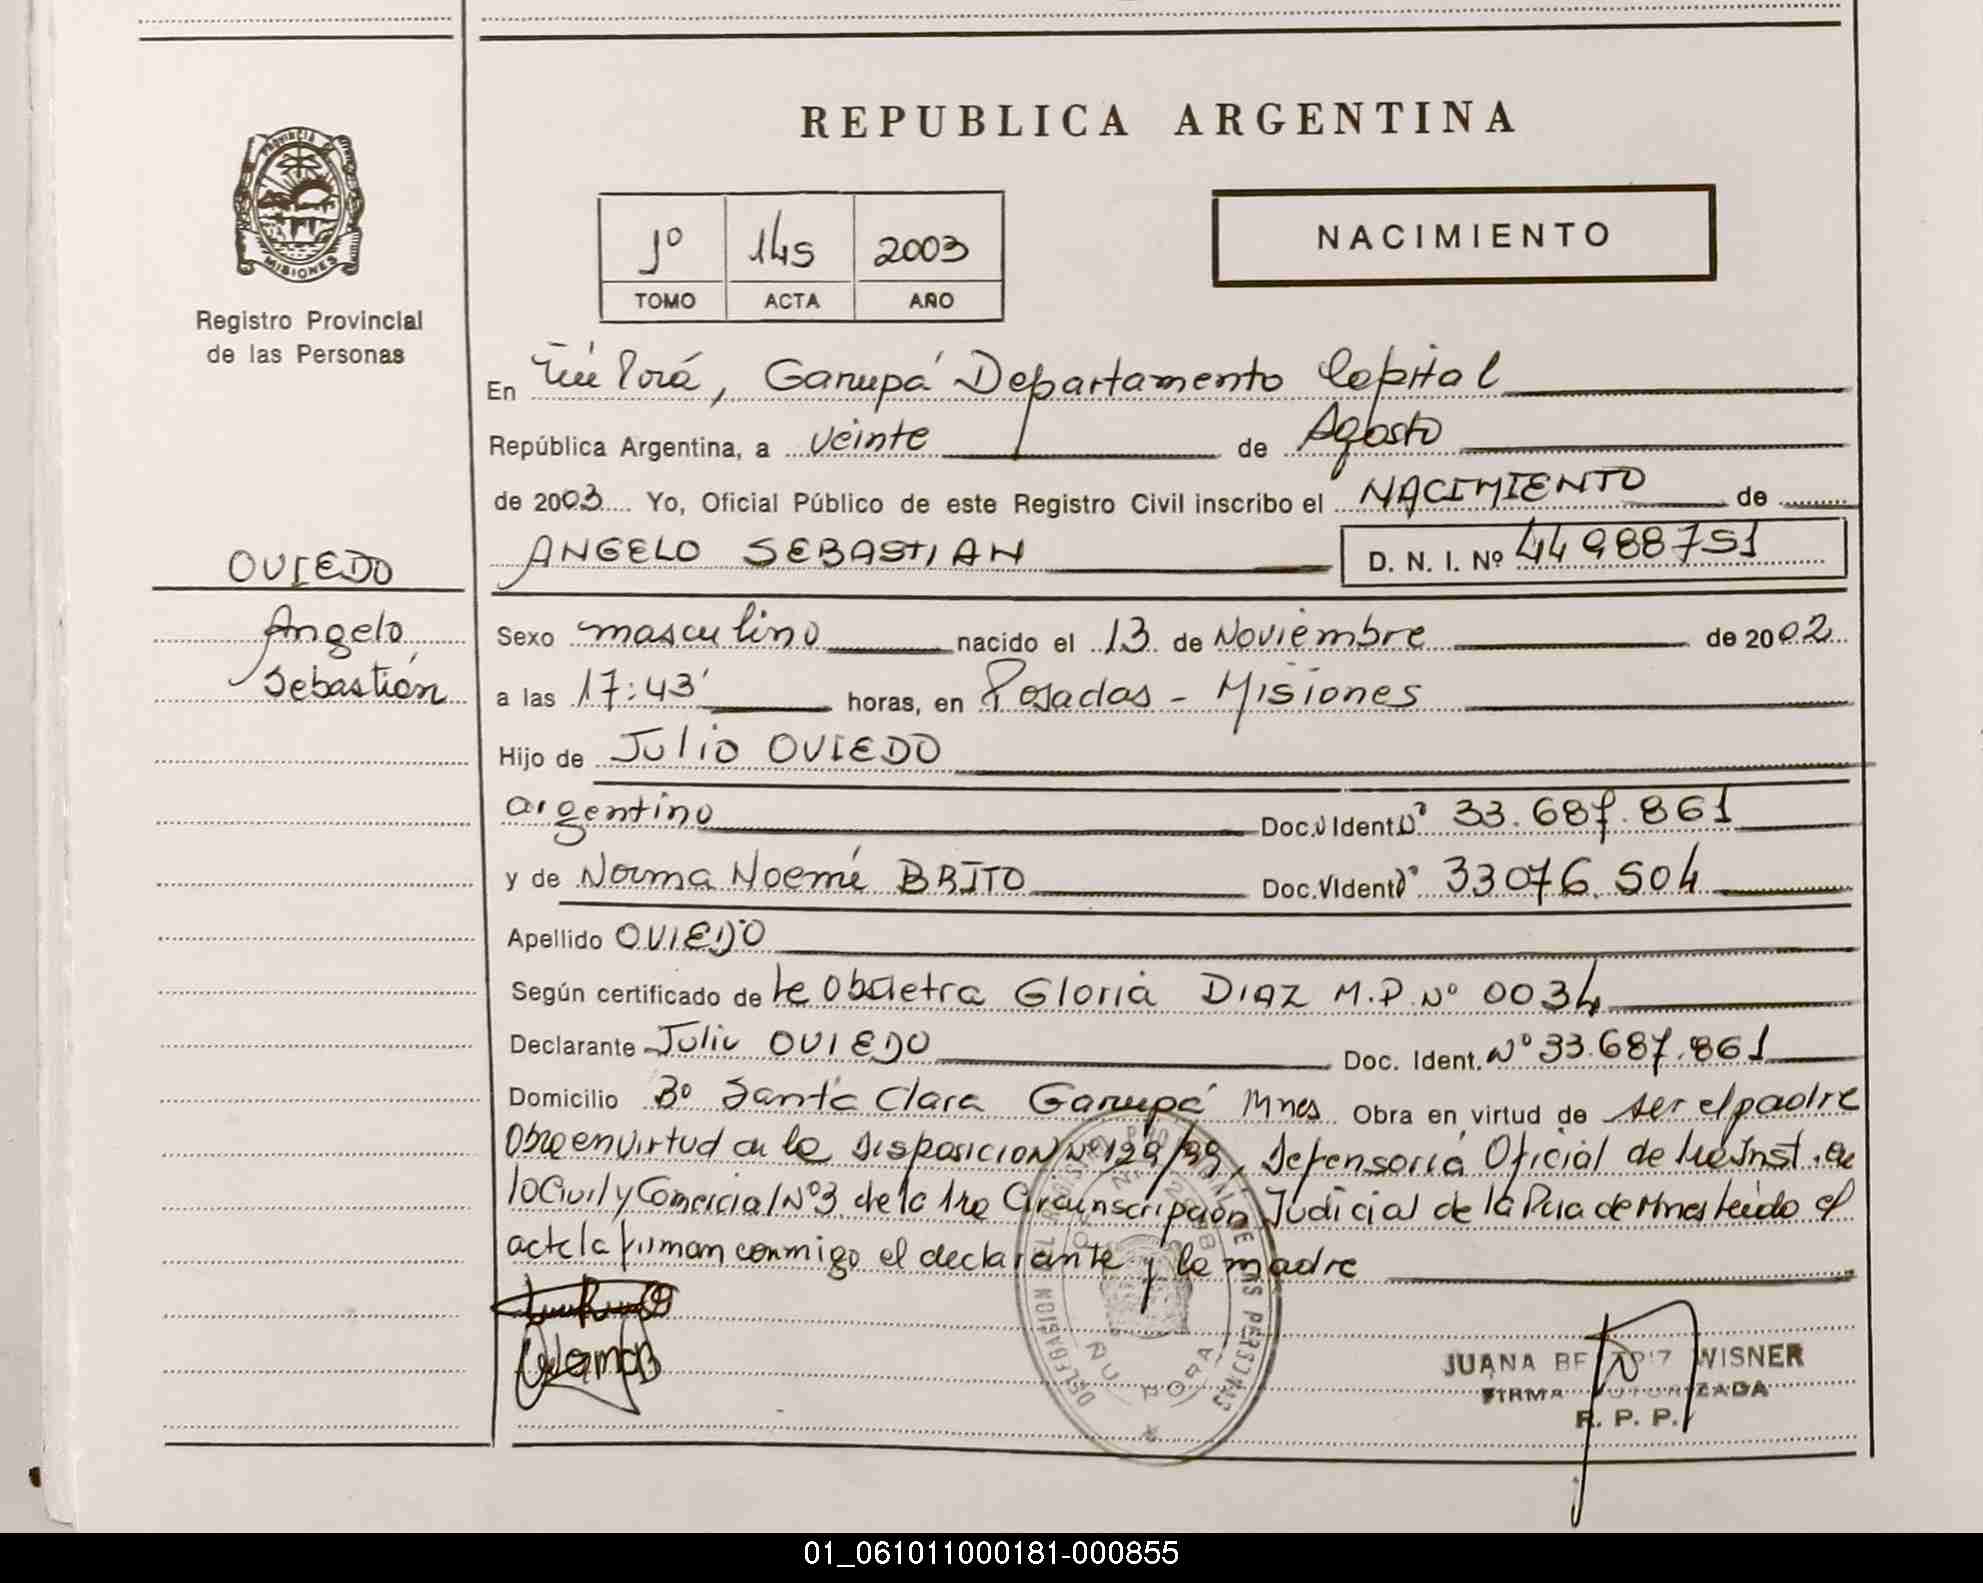 REPUBLICA ARGENTINA
PROVINCIA DE
MISIONES
Registro Provincial
de las Personas
1º 145 2003
TOMO ACTA AÑO
NACIMIENTO
En Ñu Porá, Garupá Departamento Capital
República Argentina, a veinte de Agosto
de 2003 Yo, Oficial Público de este Registro Civil inscribo el NACIMIENTO de
OVIEDO
Angelo
Sebastián
ANGELO SEBASTIAN D. N. I. Nº 44988751
Sexo masculino nacido el 13 de Noviembre de 2002
a las 17:43' horas, en Posadas - Misiones
Hijo de Julio OVIEDO
argentino Doc. Ident. Nº 33.687.861
y de Norma Noemé BRITO Doc. Ident. Nº 33076.504
Apellido OVIEDO
Según certificado de la Obstetra Gloria DIAZ M.P. Nº 0034
Declarante Julio OVIEDO Doc. Ident. Nº 33.687.861
Domicilio Bº Santa Clara Garupá Mnes Obra en virtud de ser el padre
Obra en virtud a la Disposicion Nº 129/99, Defensoria Oficial de Inst. en
lo Civil y Comercial Nº3 de la 1ra Circunscripción Judicial de la Pcia de Mnes leido el
acta la firman conmigo el declarante y la madre
NormaB
DELEGACION REGISTRO PROVINCIAL DE LAS PERSONAS
ÑU PORA
JUANA BEATRIZ WISNER
FIRMA AUTORIZADA
R. P. P.
01_061011000181-000855